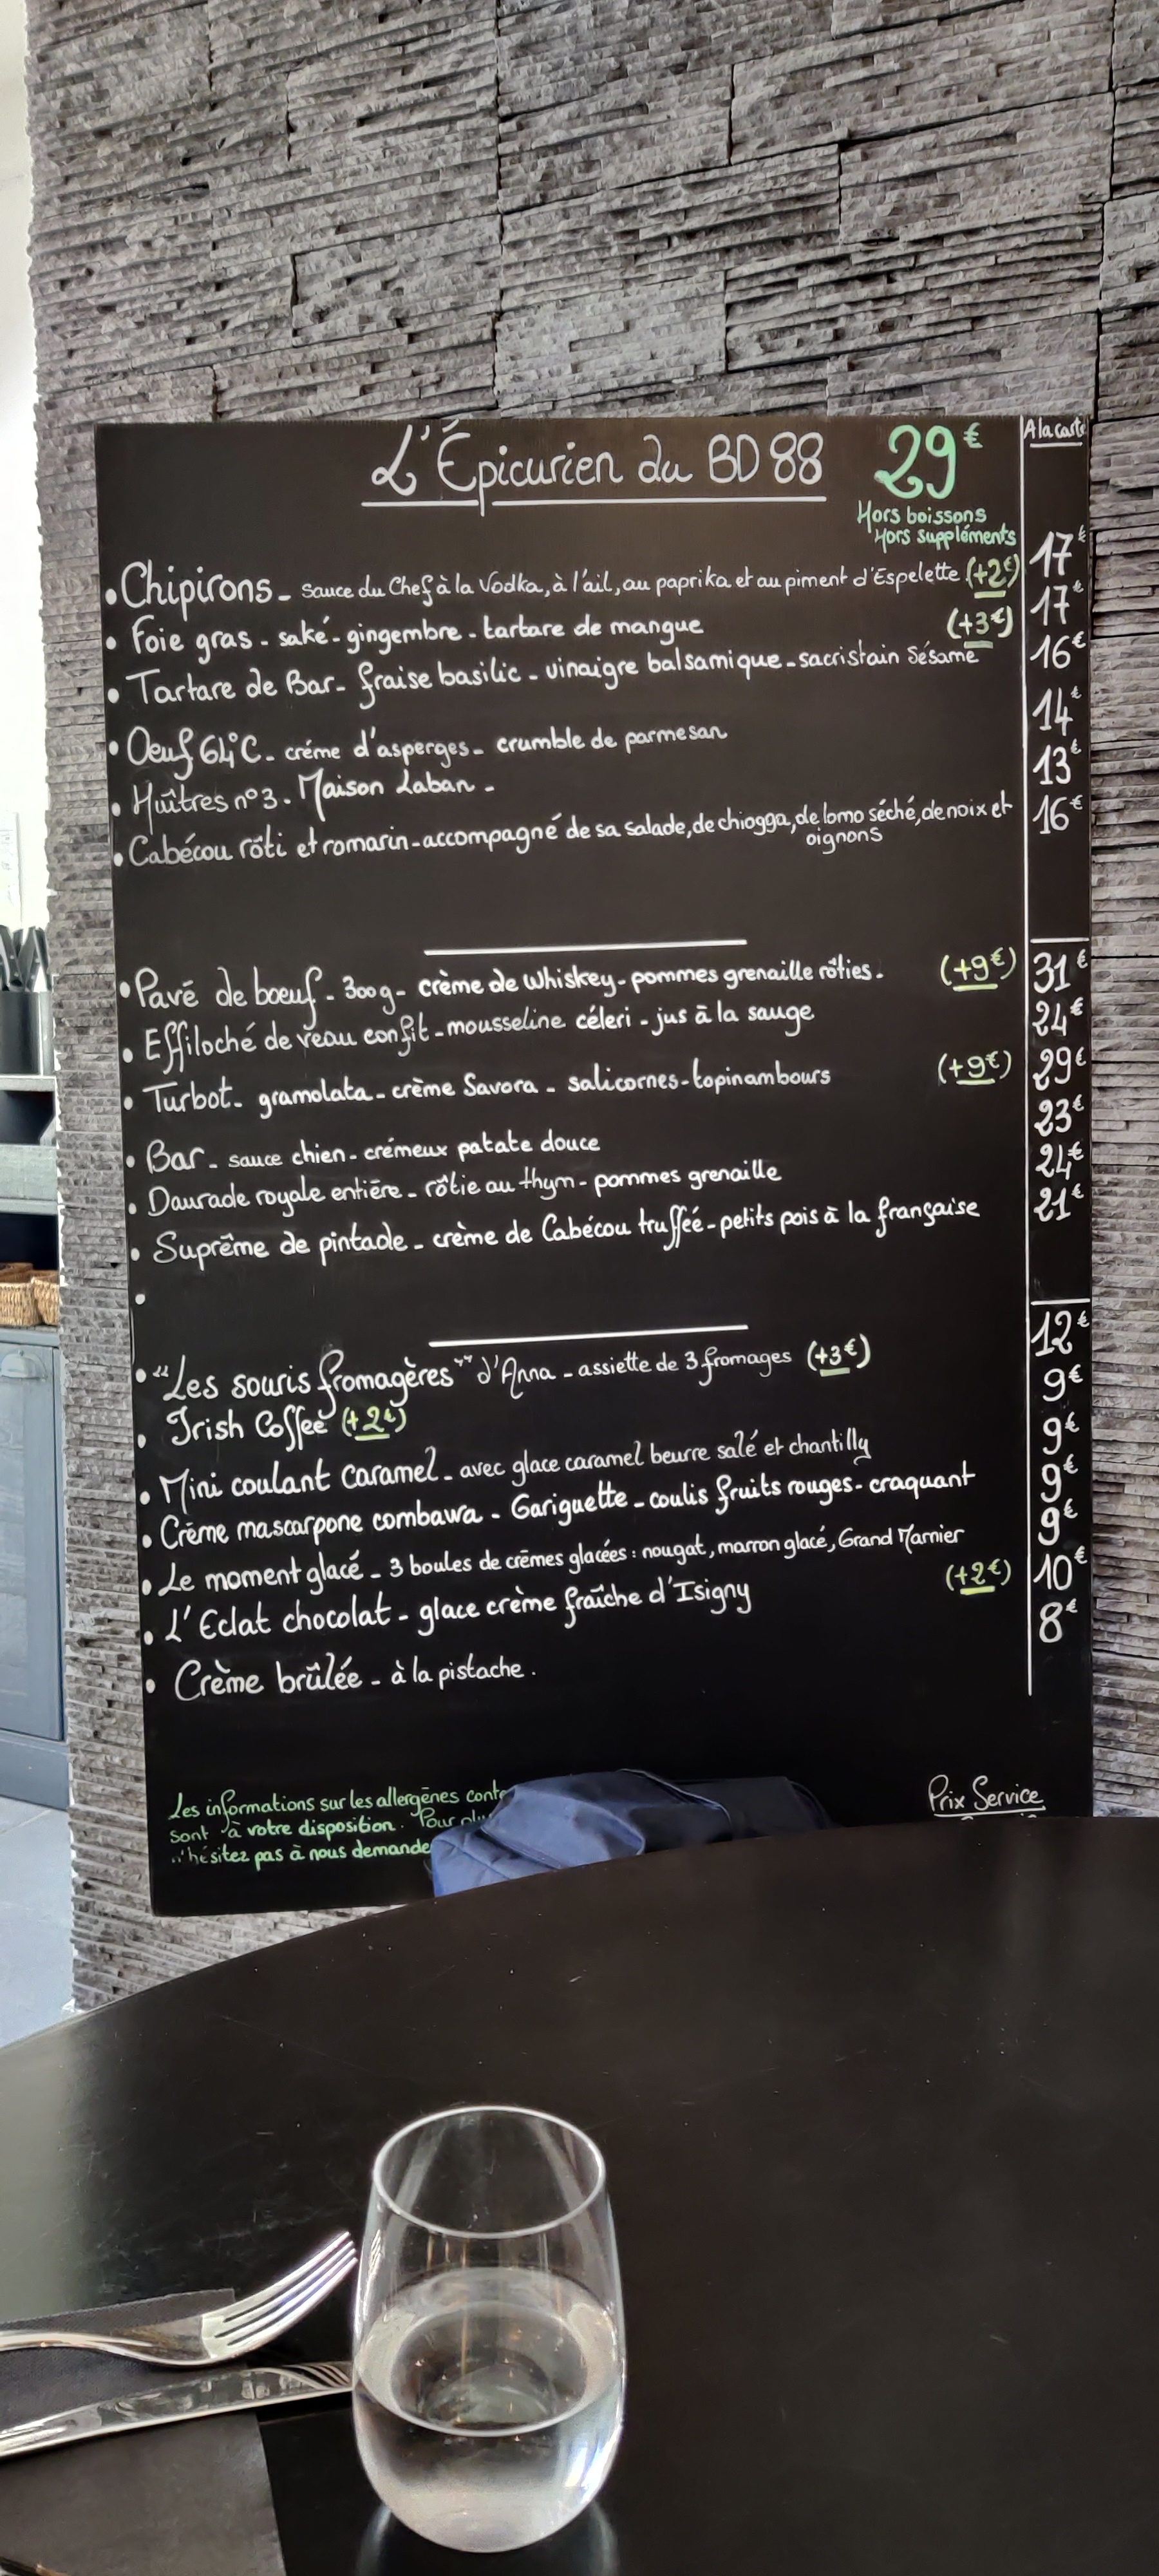 L'Épicurien du BD 88
29€
A la carte
Hors boissons
Hors suppléments
• Chipirons - sauce du Chef à la Vodka, à l'ail, au paprika et au piment d'Espelette (+2€) 17€
• Foie gras - saké - gingembre - tartare de mangue (+3€) 17€
• Tartare de Bar - fraise basilic - vinaigre balsamique - sacristain Sésame 16€
• Oeuf 64°C - créme d'asperges - crumble de parmesan 14€
• Huîtres n°3. Maison Laban - 13€
• Cabécou rôti et romarin - accompagné de sa salade, de chiogga, de lomo séché, de noix et 16€
oignons
• Pavé de boeuf - 300g - crème de Whiskey - pommes grenaille rôties. (+9€) 31€
• Effiloché de veau confit - mousseline céleri - jus à la sauge 24€
• Turbot - gramolata - crème Savora - salicornes - topinambours (+9€) 29€
• Bar - sauce chien - crémeux patate douce 23€
• Daurade royale entière - rôtie au thym - pommes grenaille 24€
• Suprême de pintade - crème de Cabécou truffée - petits pois à la française 21€
•
• "Les souris fromagères" d'Anna - assiette de 3 fromages (+3€) 12€
• Irish Coffee (+2€) 9€
• Mini coulant Caramel - avec glace caramel beurre salé et chantilly 9€
• Crème mascarpone combawa - Gariguette - coulis fruits rouges - craquant 9€
• Le moment glacé - 3 boules de crèmes glacées : nougat, marron glacé, Grand Marnier 9€
• L'Eclat chocolat - glace crème fraîche d'Isigny (+2€) 10€
• Crème brûlée - à la pistache. 8€
Les informations sur les allergènes
sont à votre disposition. Pour
n'hésitez pas à nous
Prix Service